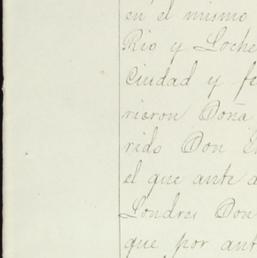 en el mismo
Rio y Loche
Ciudad y fe
rieron Doña
rido Don
el que ante a
Londres Don
que por ant